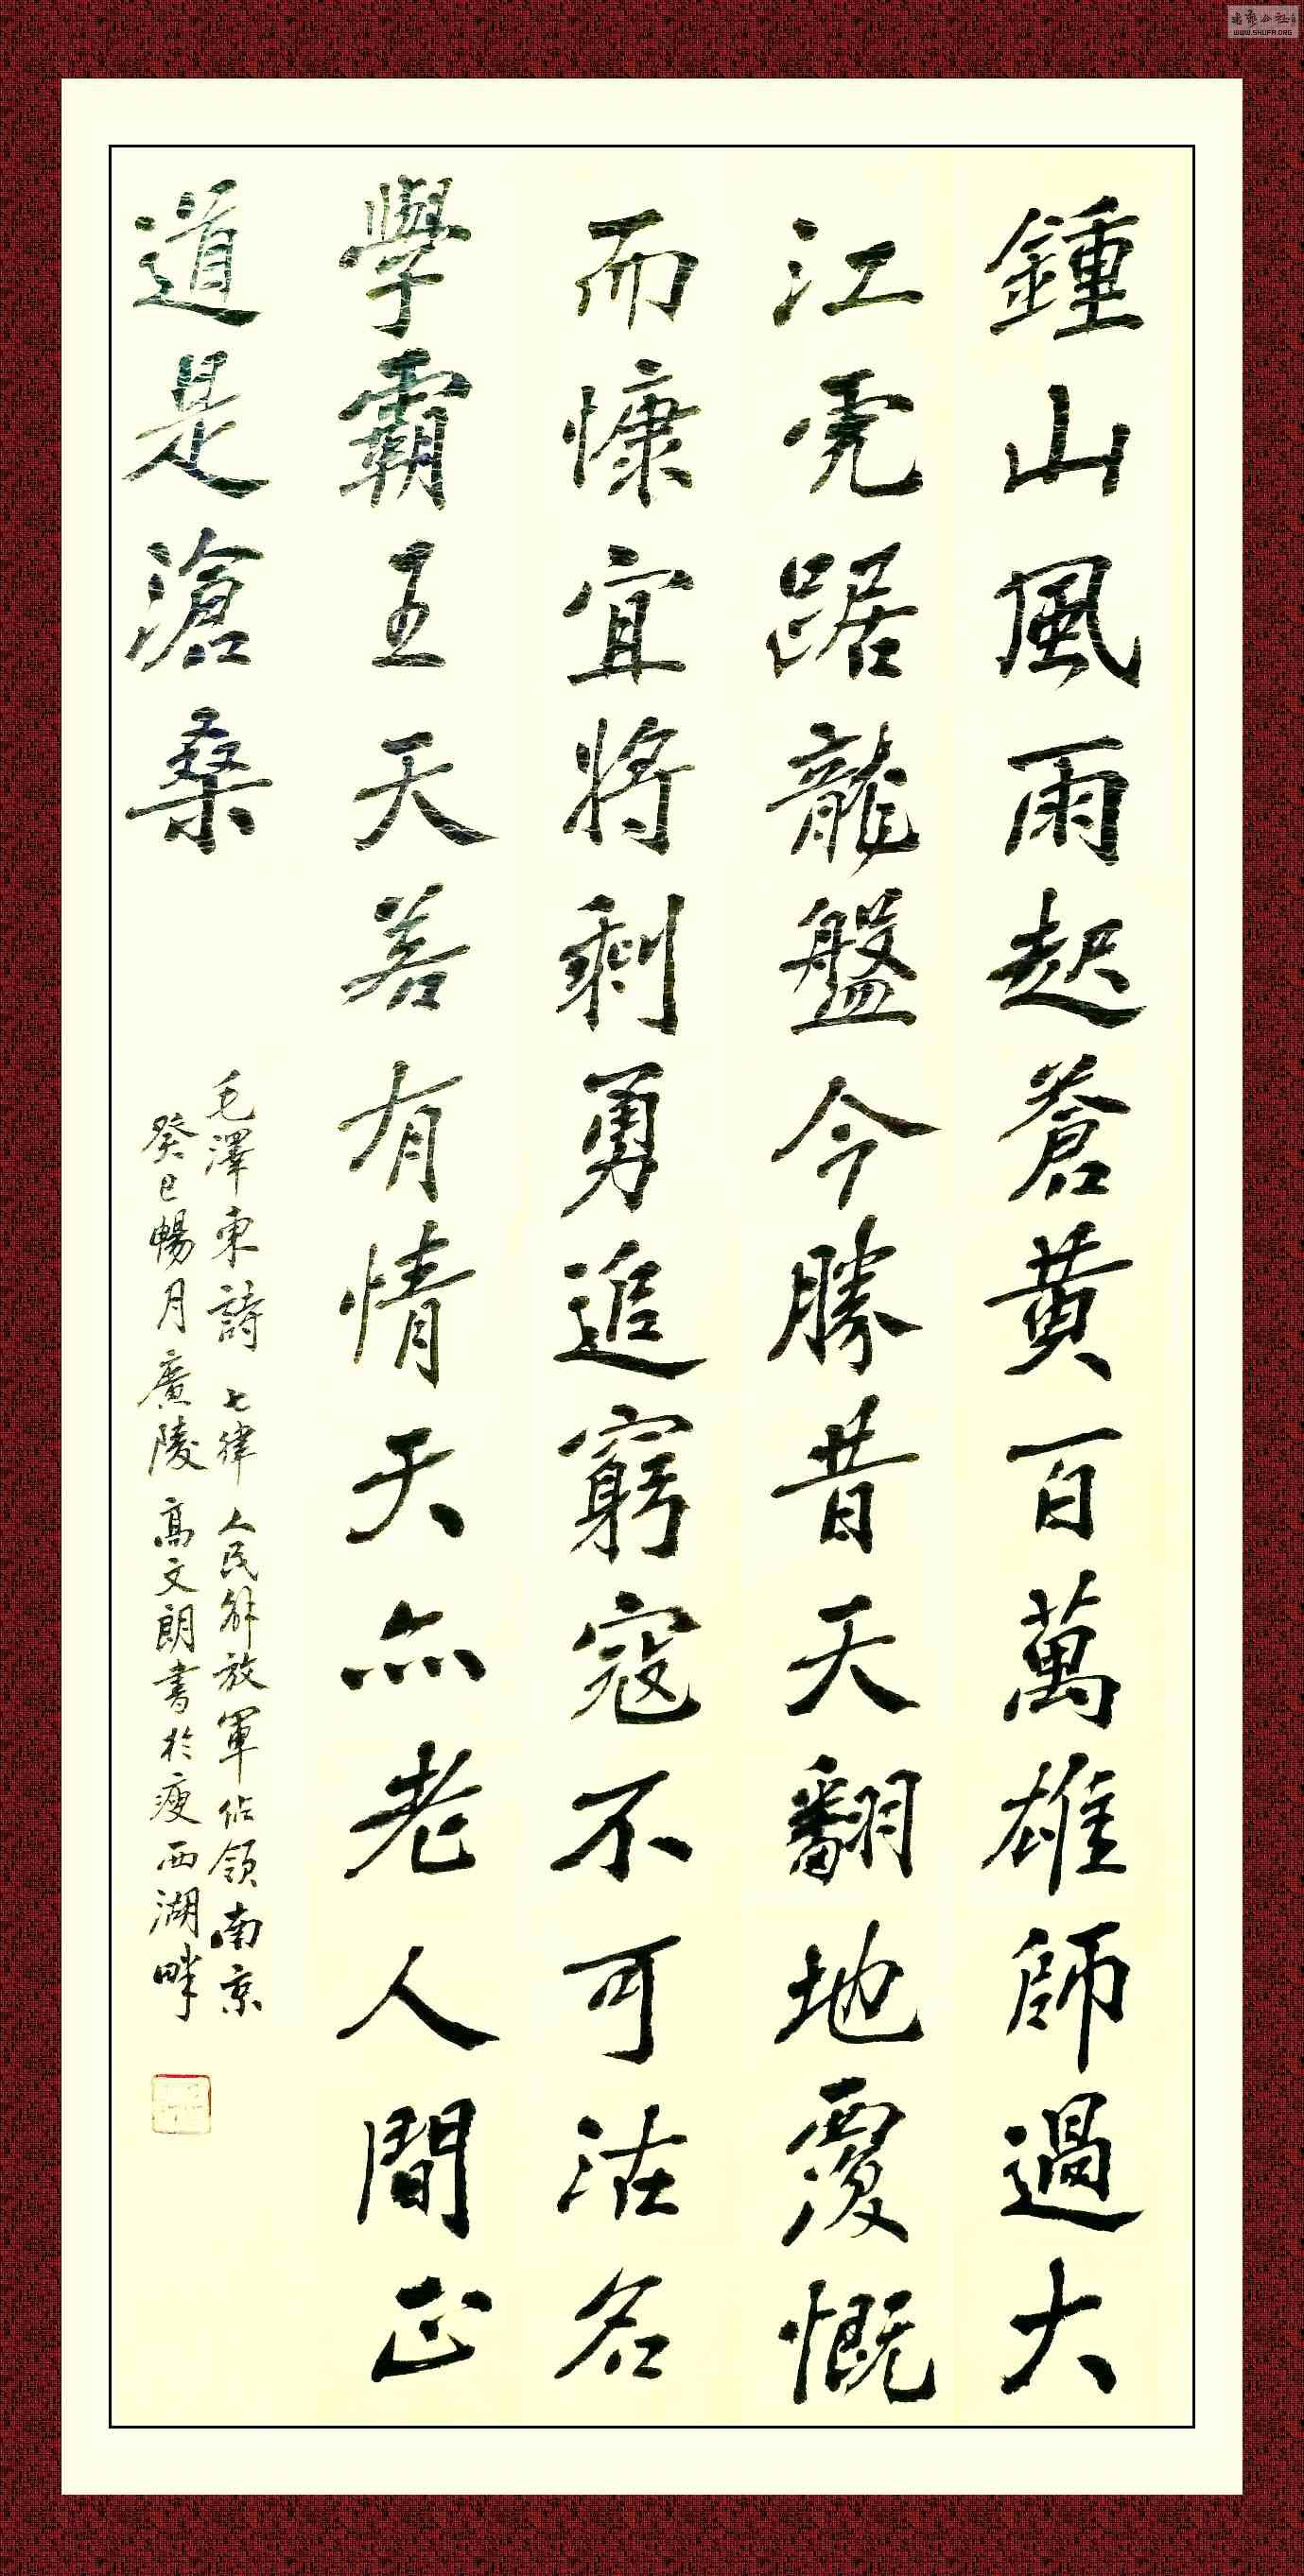 鍾山風雨起蒼黃百萬雄師過大
江虎踞龍盤今勝昔天翻地覆慨
而慷宜將剩勇追窮寇不可沽名
學霸王天若有情天亦老人間正
道是滄桑
毛澤東詩 七律 人民解放軍佔領南京
癸巳暢月廣陵高文朗書於瘦西湖畔
WWW.SHUFA.ORG